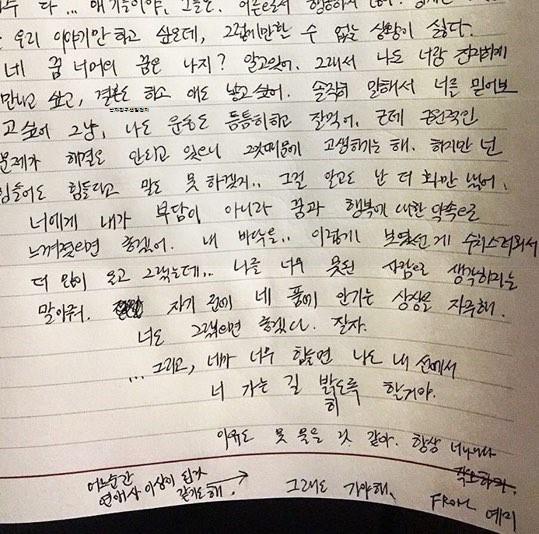 수 다... 얘기들이야, 그들은. 어른으로서 행동하지
는 우리 이야기만 하고 싶은데, 그럼에만한 수 없는 상황이 싫다.
네 꿈 너머의 꿈은 나지? 알고있어. 그래서 나도 너랑 진지하게
만나고 싶고, 결혼도 하고 애도 낳고 싶어. 솔직히 말해서 너를 믿어보
고 싶어 그냥, 나도 운동도 틈틈히하고 잘먹어. 근데 근원적인
문제가 해결은 안되고 있으니 그것때문에 고생하기는 해. 하지만 넌
힘들어도 힘들다고 말도 못 하겠지.. 그걸 알고도 난 더 화만 냈어.
너에게 내가 부담이 아니라 꿈과 행복에 대한 약속으로
느껴졌으면 좋겠어. 내 바닥을.. 이렇게 보였선게 수치스러워서
더 많이 울고 그랬는데... 나를 너무 못된 사람으로 생각하지는
말아줘. 자기 전에 네 품에 안기는 상상을 자주해.
너도 그랬으면 좋겠다. 잘자.
... 그리고, 네가 너무 힘들면 나도 내 선에서
너 가는 길 밝도록 할거야.
히
이유도 못 물을 것 같아. 항상 너보다
어느순간
연애사 이상이 된거
같기도해. → 그래도 기야해.
작으하다.
FROM 예지